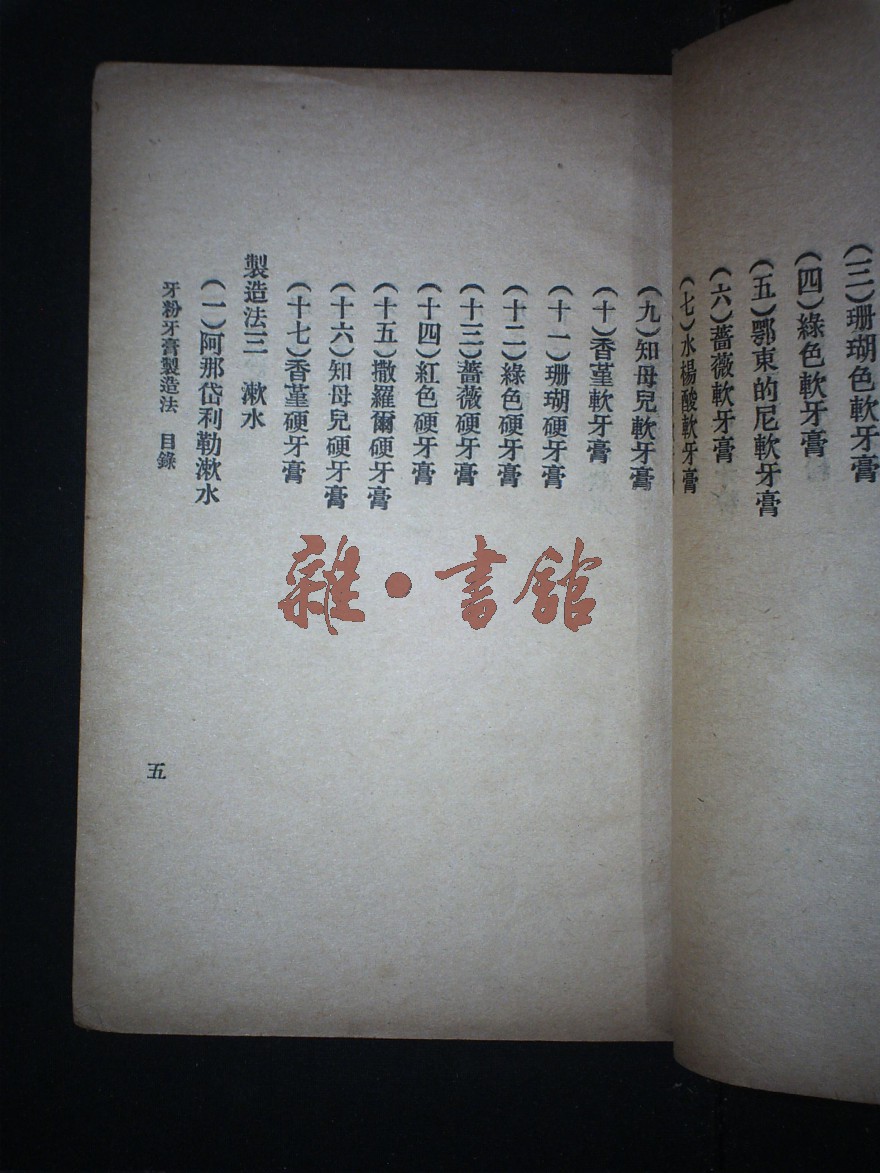 (三)珊瑚色軟牙膏
(四)綠色軟牙膏
(五)鄂東的尼軟牙膏
(六)薔薇軟牙膏
(七)水楊酸軟牙膏
(九)知母兒軟牙膏
(十)香堇軟牙膏
(十一)珊瑚硬牙膏
(十二)綠色硬牙膏
(十三)薔薇硬牙膏
(十四)紅色硬牙膏
(十五)撒羅爾硬牙膏
(十六)知母兒硬牙膏
(十七)香堇硬牙膏
製造法三 漱水
(一)阿那岱利勒漱水
牙粉牙膏製造法 目錄
五
雜·書館